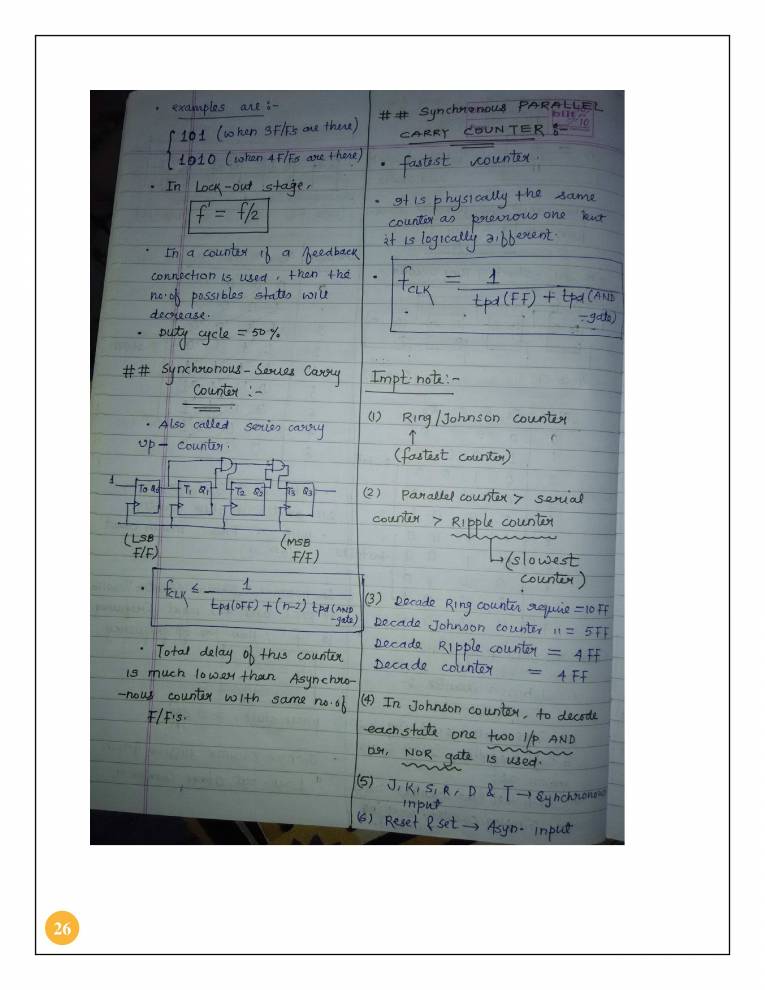 • examples are :-
101 (when 3F/Fs are there)
1010 (when 4F/Fs are there)
• In Lock-out stage,
f' = f/2
• In a counter if a feedback
connection is used, then the
no. of possibles states will
decrease.
• Duty cycle = 50%
## Synchronous - Series Carry
Counter :-
• Also called series carry
up - counter.
1 T0 Q0 T1 Q1 T2 Q2 T3 Q3
(LSB
F/F)
(MSB
F/F)
• fCLK ≤ 1 / tpd(OFF) + (n-2) tpd(AND
-gate)
• Total delay of this counter
is much lower than Asynchro-
-nous counter with same no. of
F/F's.
## Synchronous PARALLEL
CARRY COUNTER :-
• fastest counter.
• It is physically the same
counter as previous one but
it is logically different.
• fCLK = 1 / tpd(FF) + tpd(AND
-gate)
Impt. note :-
(1) Ring/Johnson counter
↑
(fastest counter)
(2) Parallel counter > serial
counter > Ripple counter
→ (slowest
counter)
(3) Decade Ring counter require = 10 FF
Decade Johnson counter " = 5 FF
Decade Ripple counter = 4 FF
Decade counter = 4 FF
(4) In Johnson counter, to decode
each state one two I/p AND
or, NOR gate is used.
(5) J, K, S, R, D & T → Synchronous
input
(6) Reset & set → Asyn. input
26